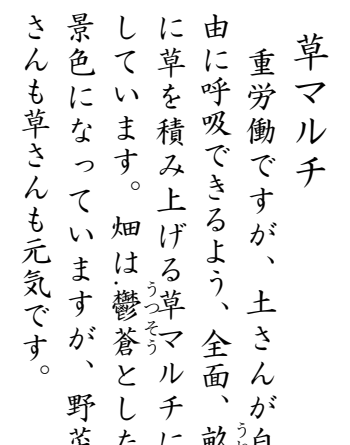 草マルチ
重労働ですが、土さんが自
由に呼吸できるよう、全面、畝
に草を積み上げる草マルチに
しています。畑は鬱蒼とした
景色になっていますが、野菜
さんも草さんも元気です。
うっそう